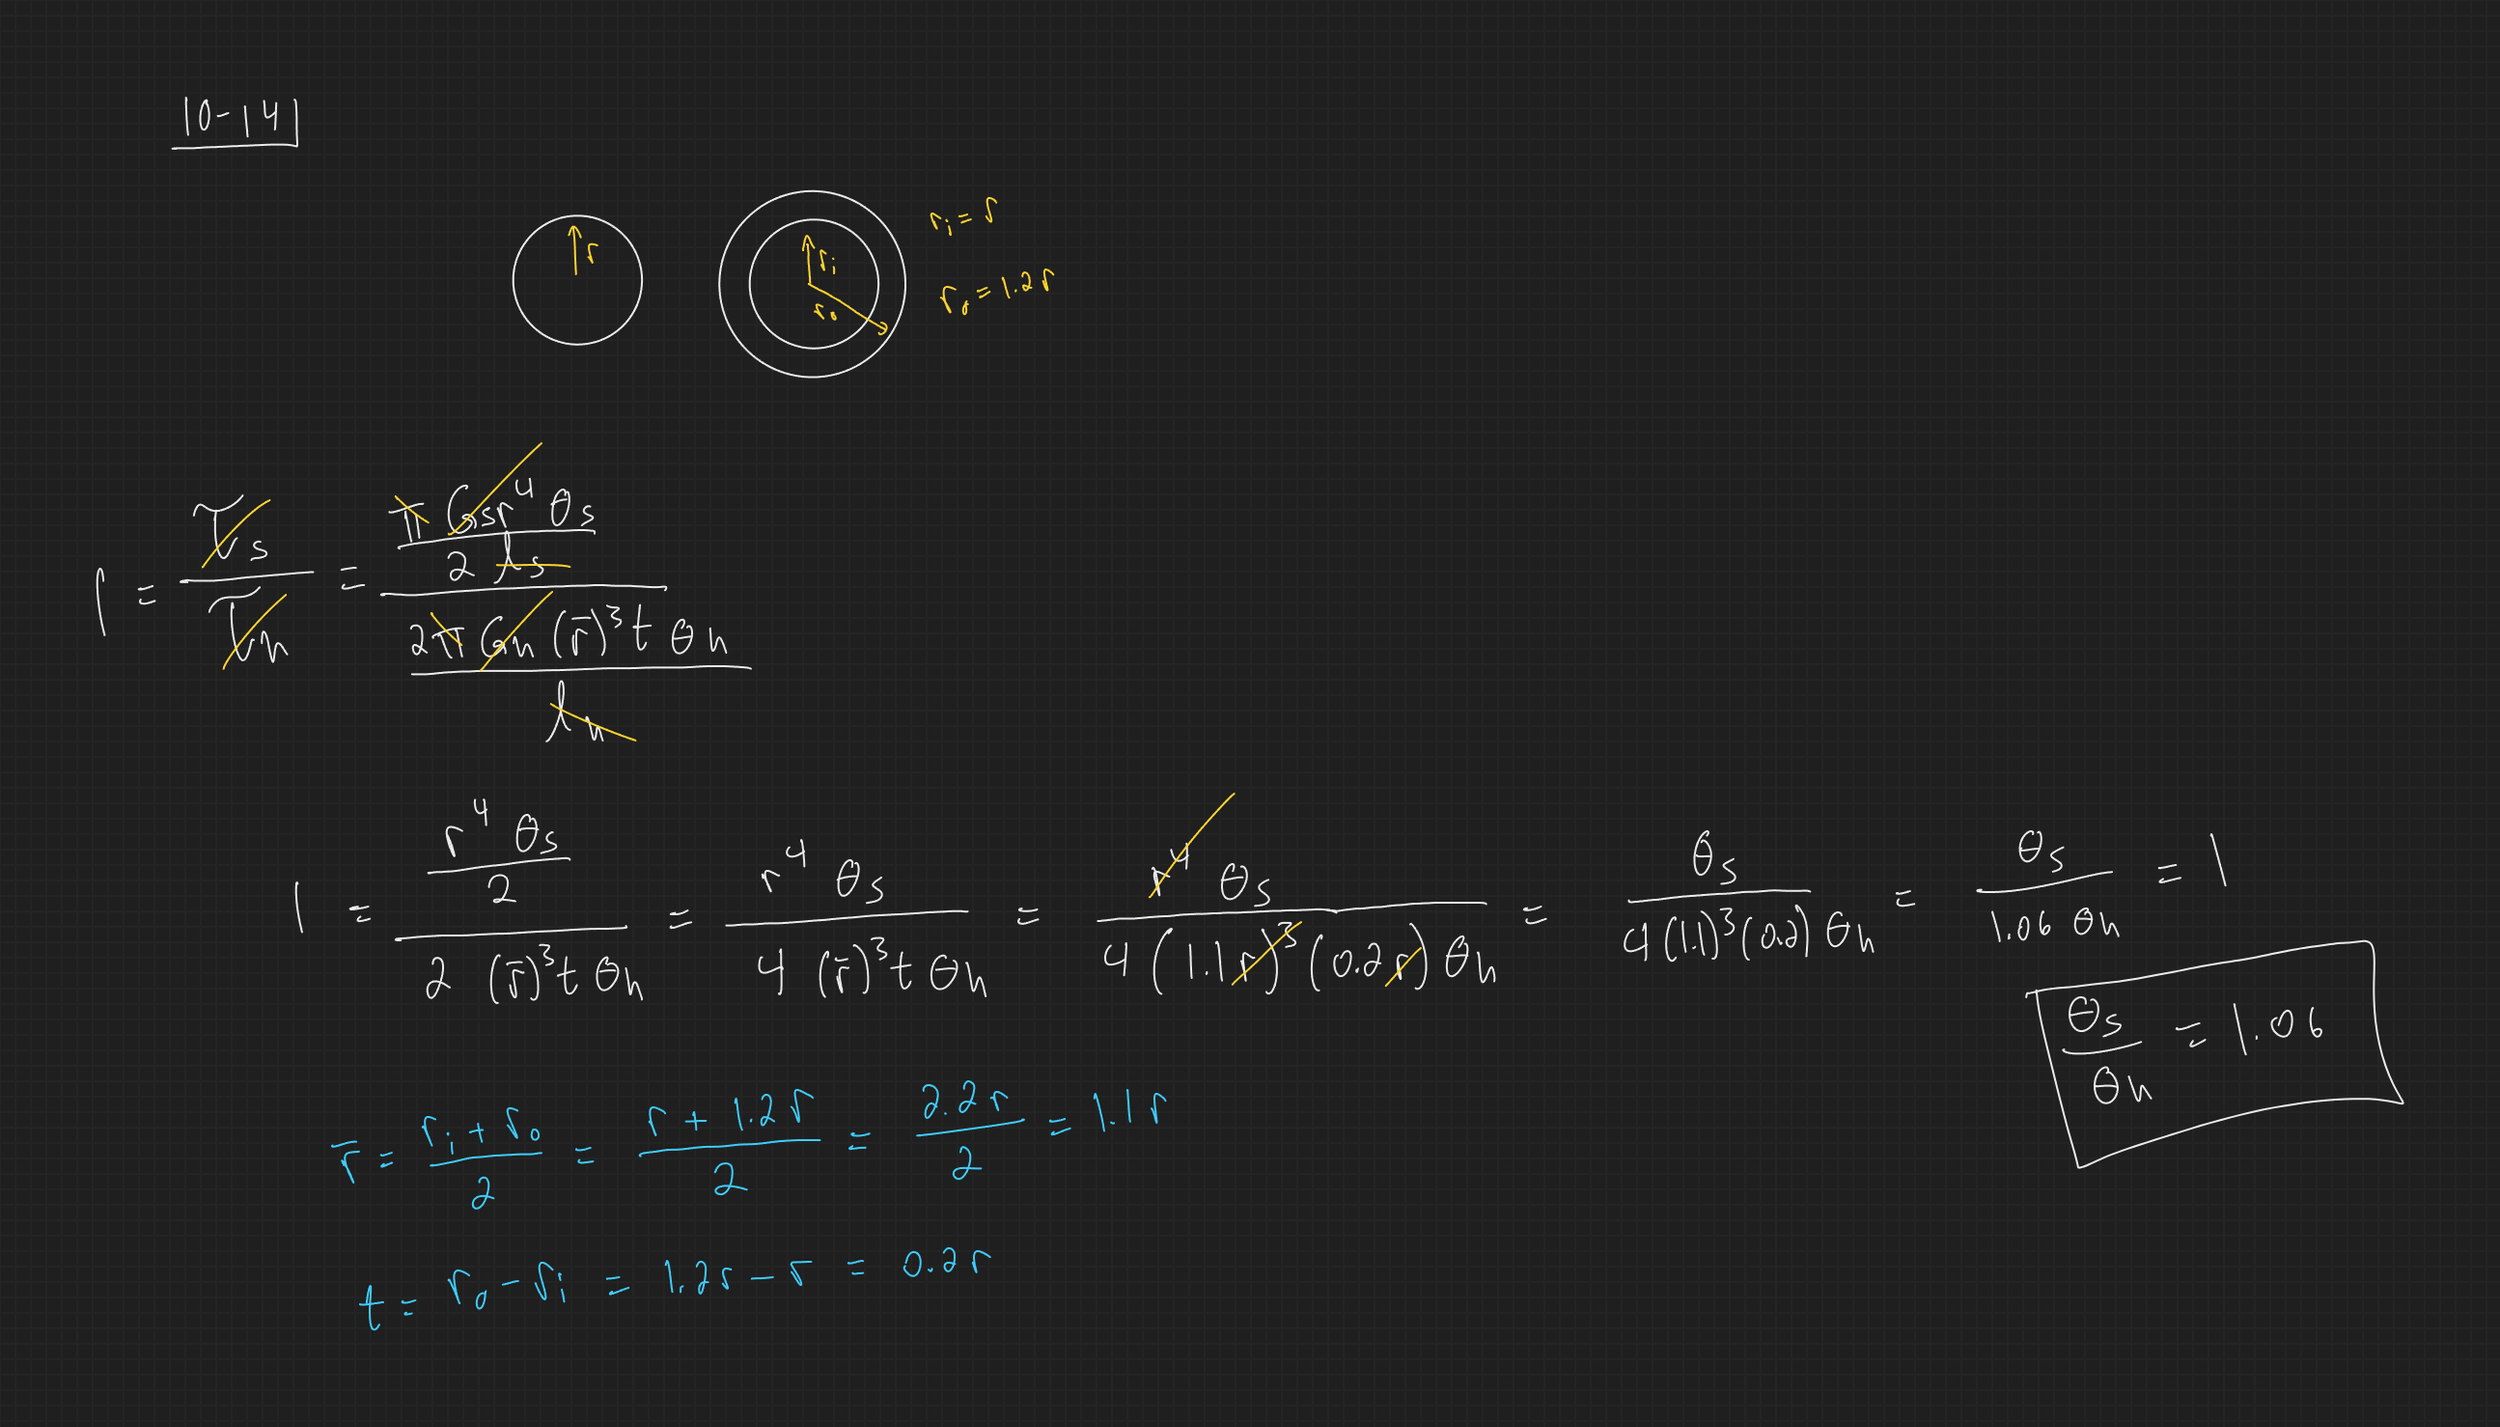 10-14
r
r_i
r_o
r_i = r
r_o = 1.2r
1 = τ_s / τ_h = (π G_s r^4 θ_s / 2 l_s) / (2π G_h (r̄)^3 t θ_h / l_h)
1 = (r^4 θ_s / 2) / (2 (r̄)^3 t θ_h) = r^4 θ_s / (4 (r̄)^3 t θ_h) = r^4 θ_s / (4 (1.1r)^3 (0.2r) θ_h) = θ_s / (4(1.1)^3 (0.2) θ_h) = θ_s / (1.06 θ_h) = 1
θ_s / θ_h = 1.06
r̄ = (r_i + r_o) / 2 = (r + 1.2r) / 2 = 2.2r / 2 = 1.1r
t = r_o - r_i = 1.2r - r = 0.2r